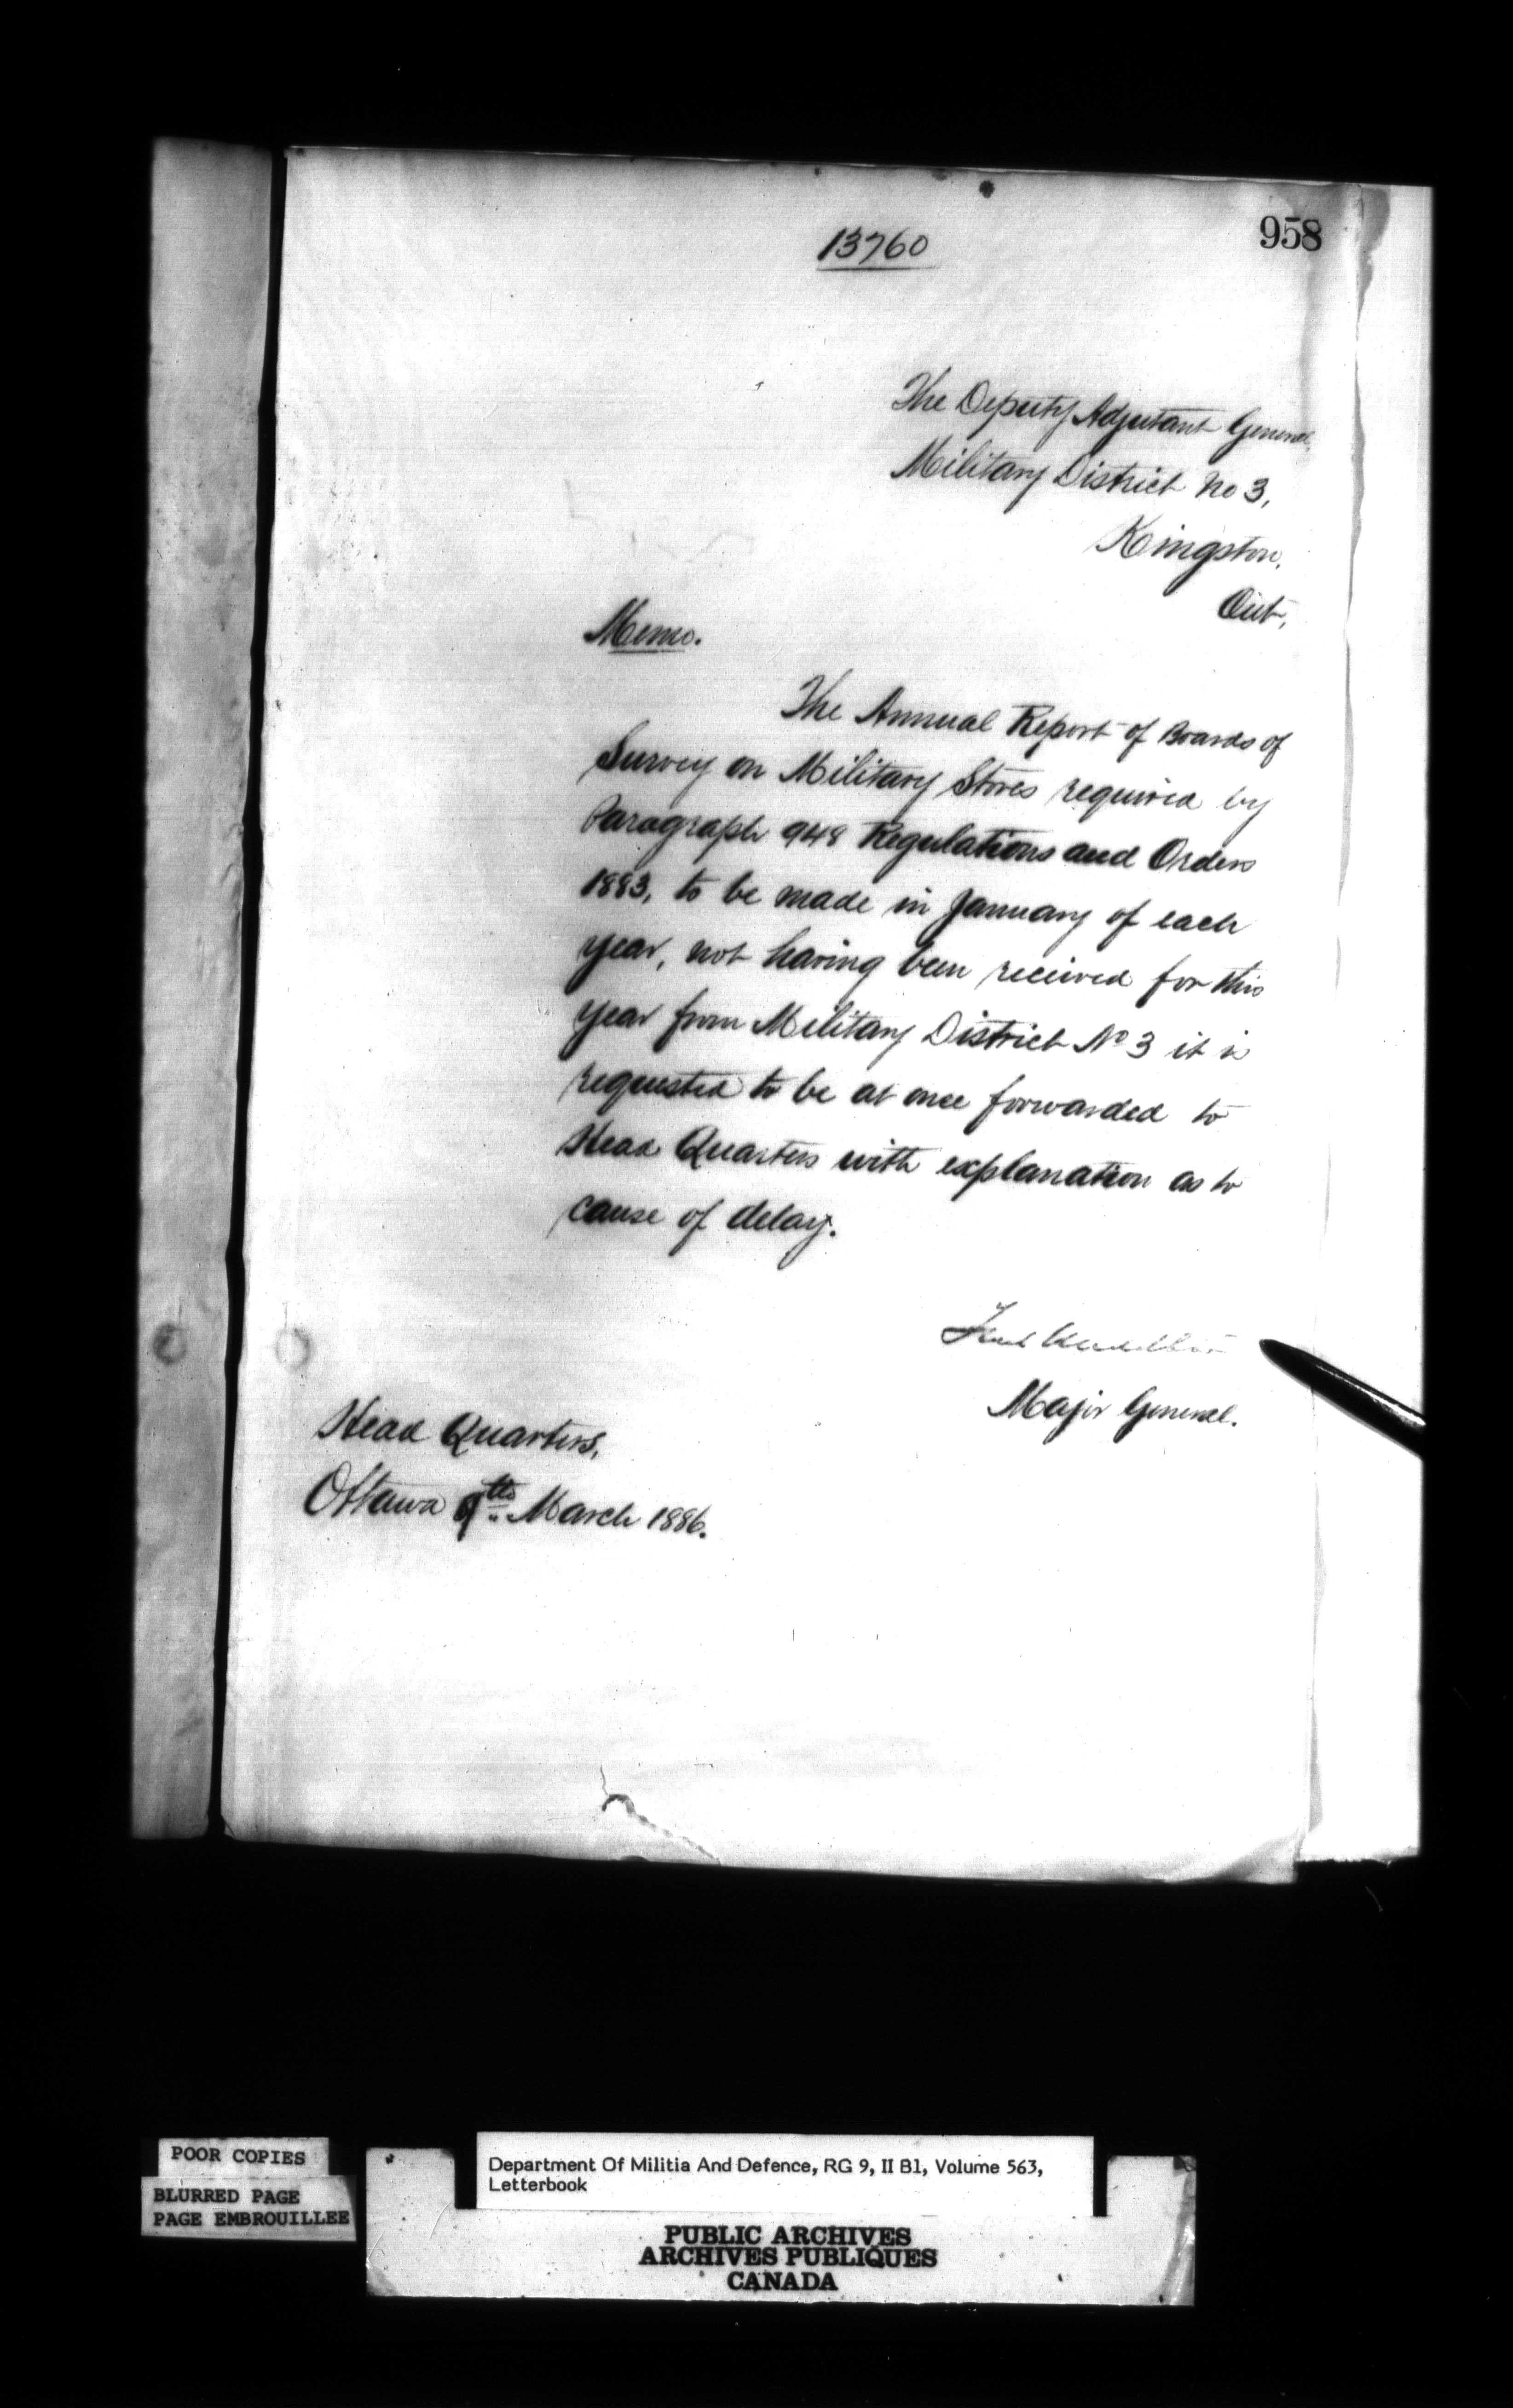 958
13760
The Deputy Adjutant General,
Military District No 3,
Kingston,
Ont,
Memo.
The Annual Report of Boards of
Survey on Military Stores required by
Paragraph 948 Regulations and Orders
1883, to be made in January of each
year, not having been received for this
year from Military District No 3 it is
requested to be at once forwarded to
Head Quarters with explanation as to
cause of delay.
Fred Middleton
Major General.
Head Quarters,
Ottawa 9th March 1886.
POOR COPIES
BLURRED PAGE
PAGE EMBROUILLEE
Department Of Militia And Defence, RG 9, II B1, Volume 563,
Letterbook
PUBLIC ARCHIVES
ARCHIVES PUBLIQUES
CANADA